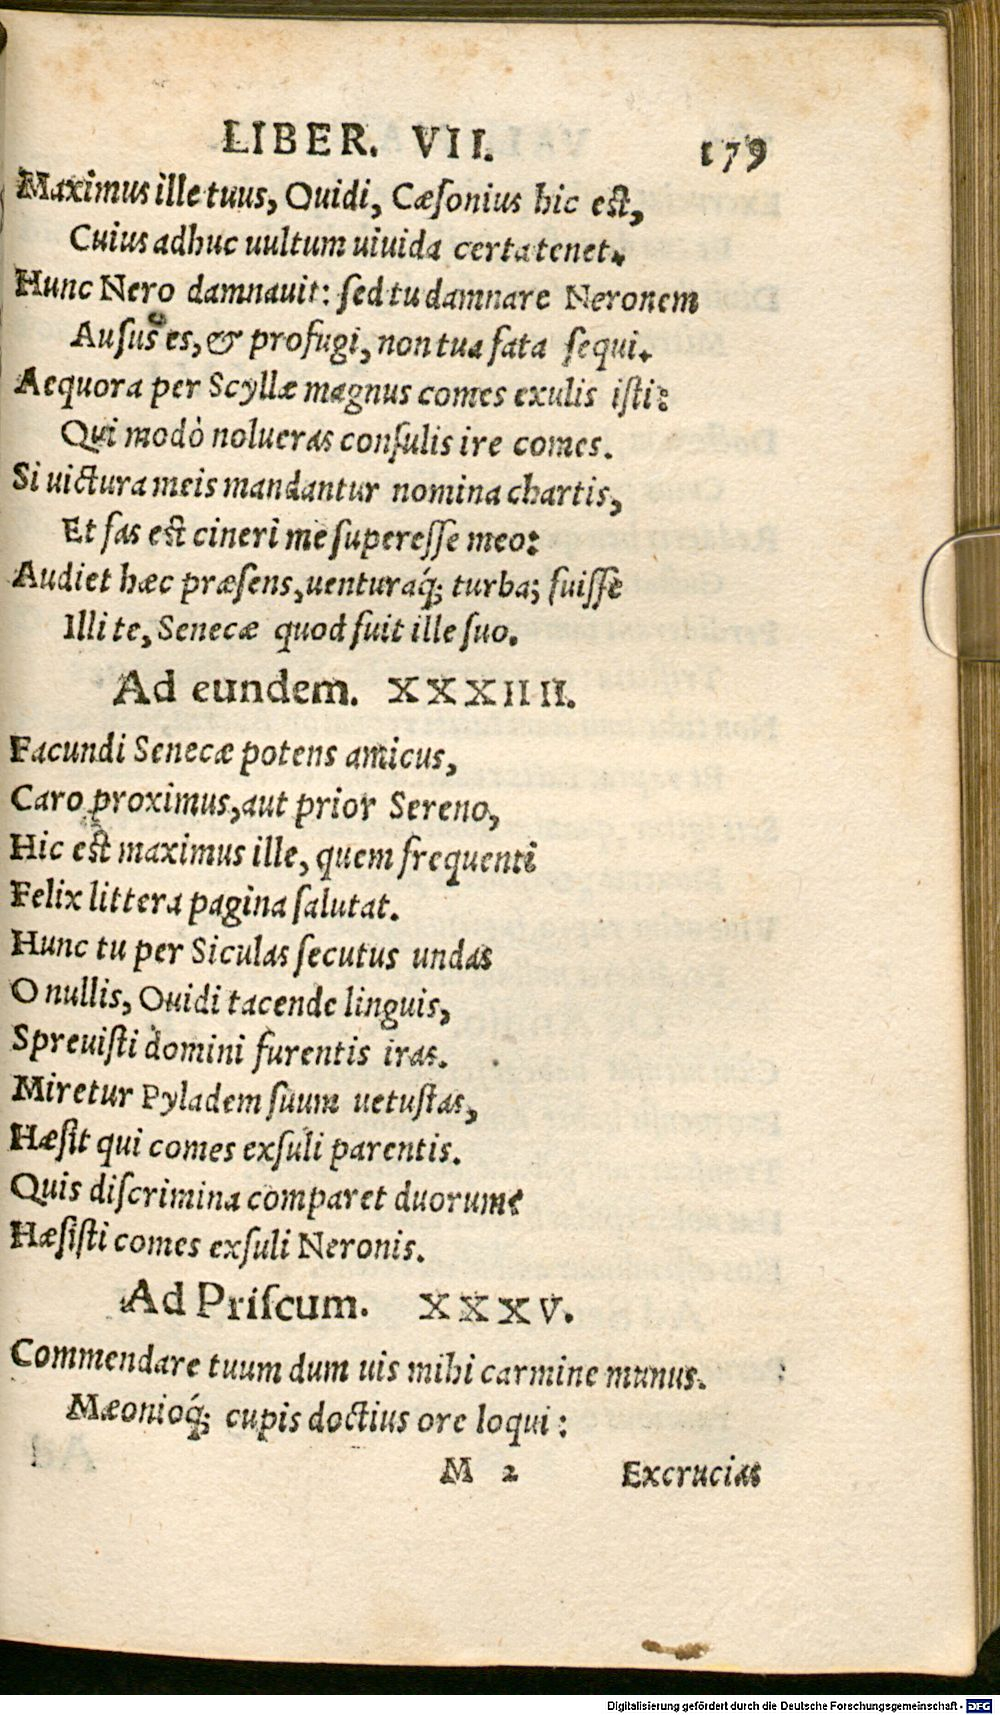 LIBER. VII. 179
Maximus ille tuus, Ouidi, Cæſonius hic eſt,
Cuius adhuc uultum uiuida certa tenet.
Hunc Nero damnauit: ſed tu damnare Neronem
Auſus es, & profugi, non tua fata ſequi.
Aequora per Scyllæ magnus comes exulis iſti:
Qui modò nolueras conſulis ire comes.
Si uictura meis mandantur nomina chartis,
Et fas eſt cineri me ſupereſſe meo:
Audiet hæc præſens, uenturaq́; turba; fuiſſe
Illi te, Senecæ quod fuit ille ſuo.
Ad eundem. XXXIIII.
Facundi Senecæ potens amicus,
Caro proximus, aut prior Sereno,
Hic eſt maximus ille, quem frequenti
Felix littera pagina ſalutat.
Hunc tu per Siculas ſecutus undas
O nullis, Ouidi tacende linguis,
Spreuiſti domini furentis iras.
Miretur Pyladem ſuum uetuſtas,
Hæſit qui comes exſuli parentis.
Quis diſcrimina comparet duorum?
Hæſiſti comes exſuli Neronis.
Ad Priſcum. XXXV.
Commendare tuum dum uis mihi carmine munus.
Mæonioq́; cupis doctius ore loqui:
M 2 Excrucias
Digitalisierung gefördert durch die Deutsche Forschungsgemeinschaft - DFG